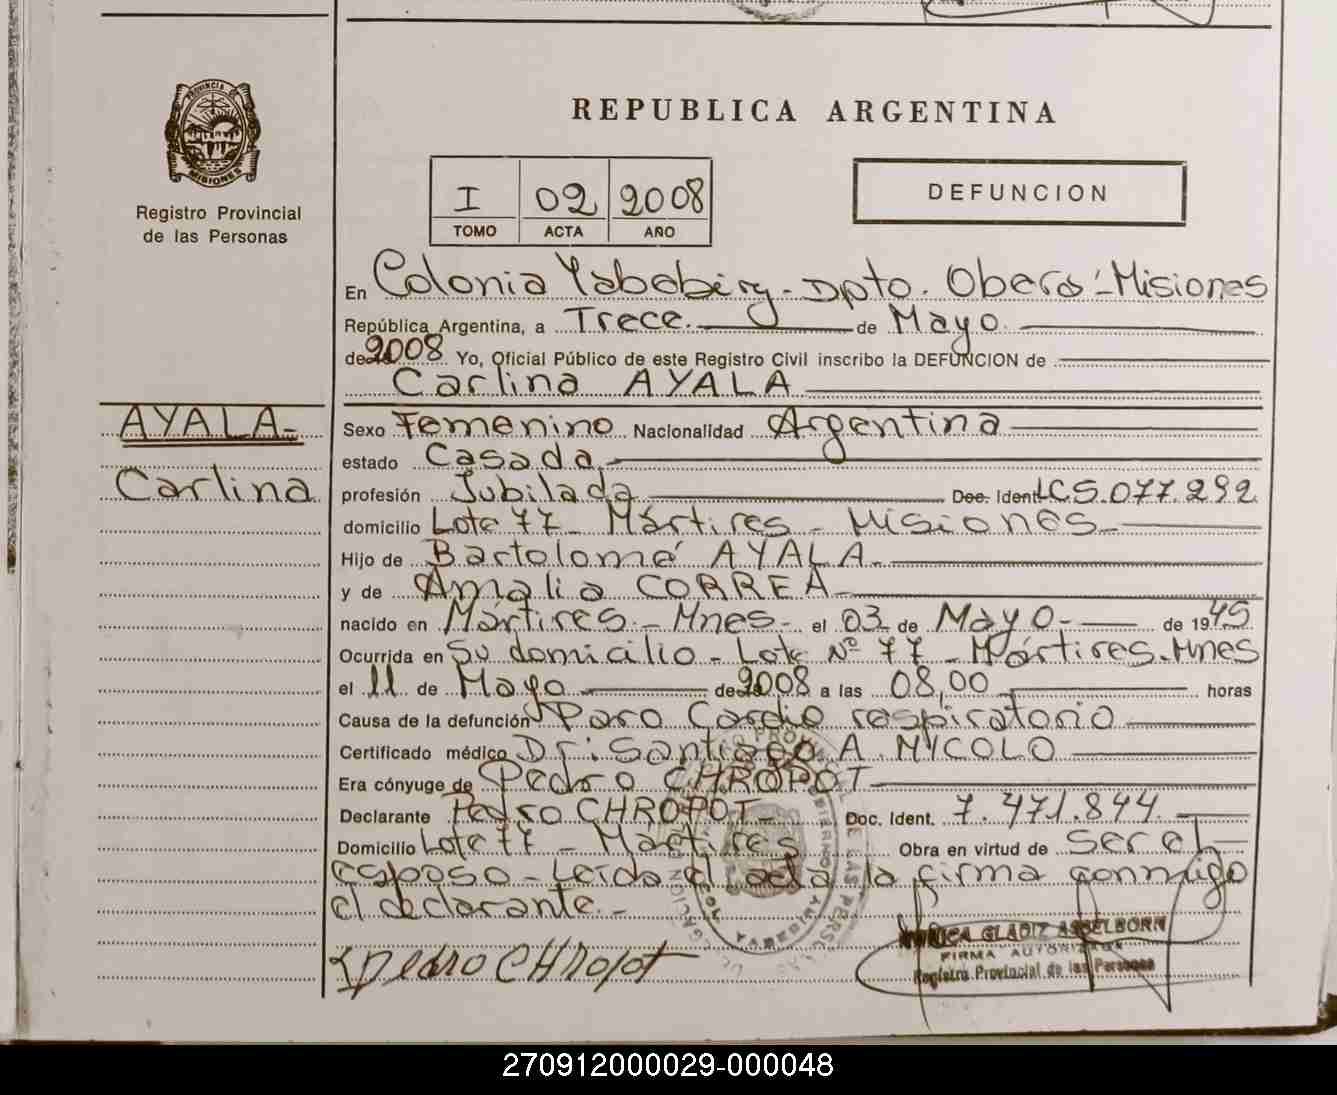 PROVINCIA DE
MISIONES
Registro Provincial
de las Personas
REPUBLICA ARGENTINA
I 02 2008
TOMO ACTA AÑO
DEFUNCION
En Colonia Yabebiry - Dpto. Oberá - Misiones
República Argentina, a Trece. de Mayo.
de 2008 Yo, Oficial Público de este Registro Civil inscribo la DEFUNCION de
Carlina AYALA
AYALA-
Carlina
Sexo Femenino Nacionalidad Argentina
estado Casada.
profesión Jubilada Doc. Ident. LC5.077.292
domicilio Lote 77 - Mártires - Misiones-
Hijo de Bartolomé AYALA.
y de Amalia CORREA-
nacido en Mártires - Mnes - el 03 de Mayo - de 1945
Ocurrida en Su domicilio - Lote Nº 77 - Mártires - Mnes
el 11 de Mayo de 2008 a las 08,00 horas
Causa de la defunción Paro Cardio respiratorio
Certificado médico Dr: Santiago A. MICOLO
Era cónyuge de Pedro CHROPOT
Declarante Pedro CHROPOT - Doc. Ident. 7.471.844
Domicilio Lote 77 - Mártires Obra en virtud de ser el
esposo - Leída el acta la firma conmigo
el declarante.-
Pedro CHROPOT
GLADIZ ASSELBORN
FIRMA AUTORIZADA
Registro Provincial de las Personas
270912000029-000048